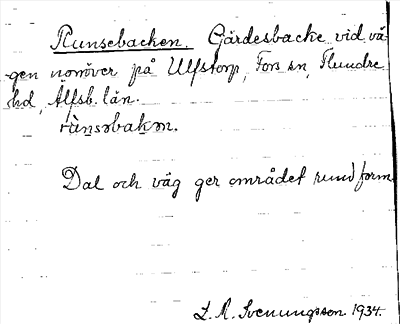 Runsebacken. Gärdesbacke vid vä-
gen norröver på Ulfstorp, Fors sn, Flundre
hd, Älfsb. län.
rùnsəbakən.
Dal och väg ger området rund form.
L. A. Svenungsson. 1934.